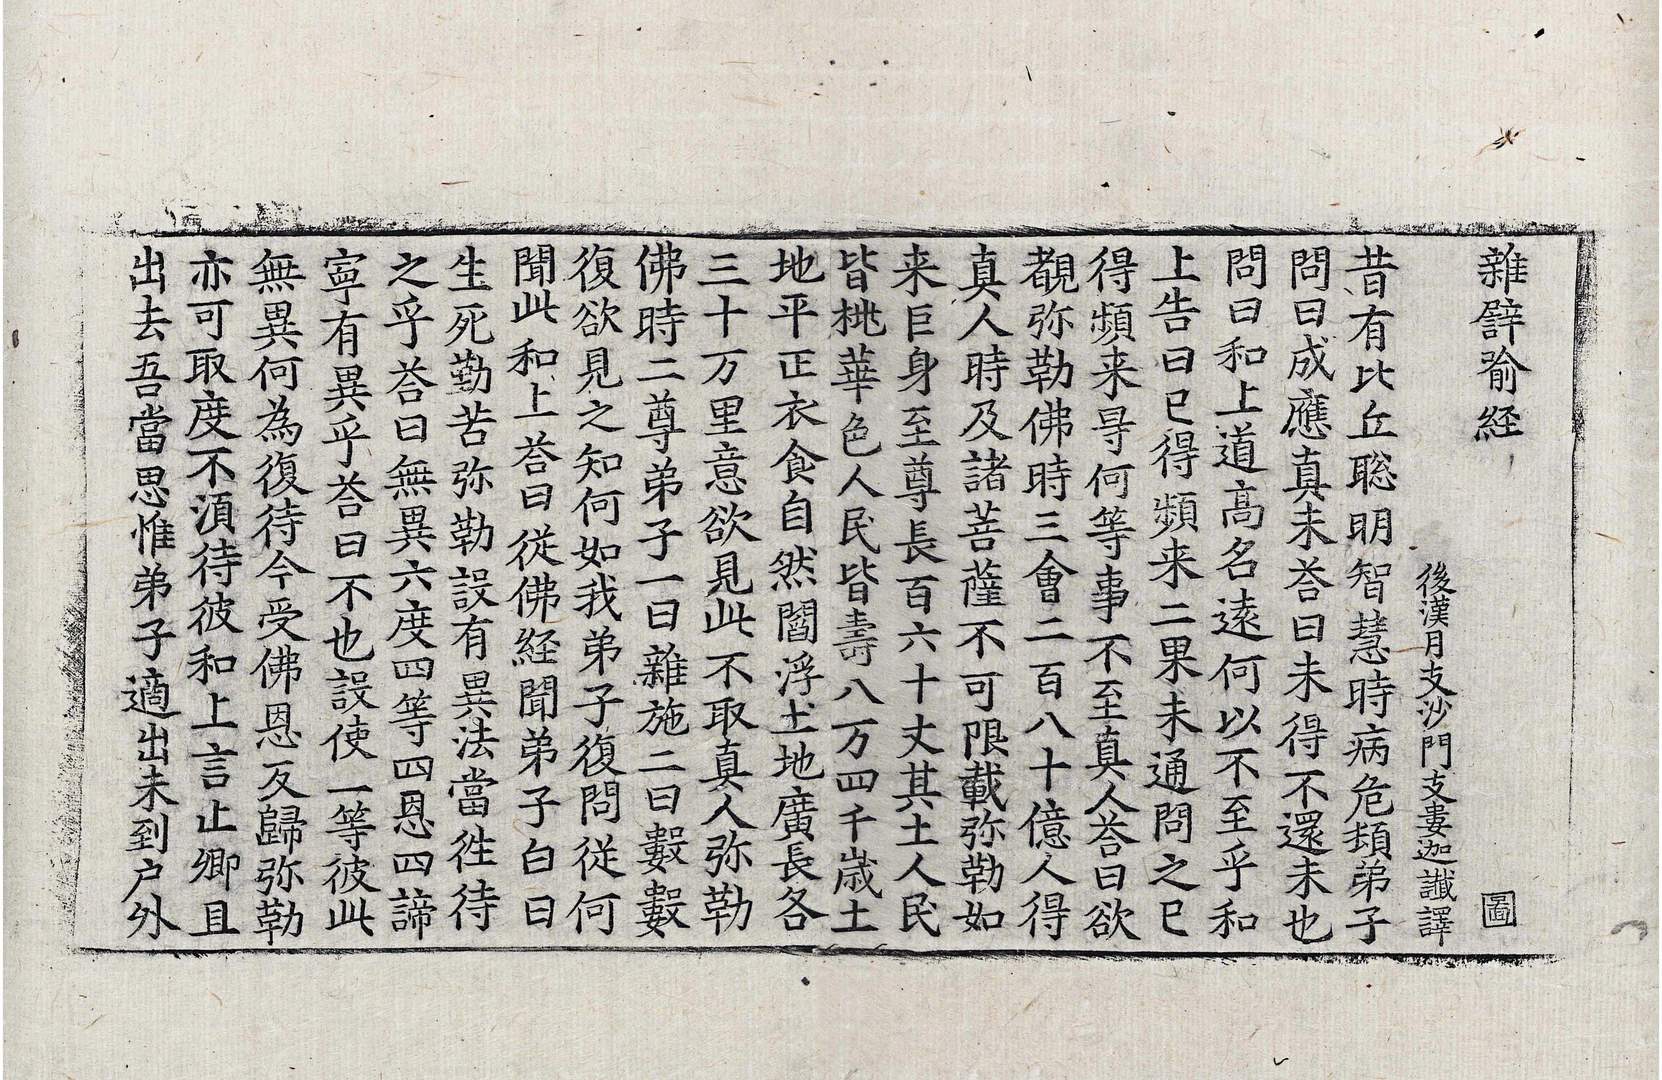 雜譬喻経 圖
後漢月支沙門支婁迦讖譯
昔有比丘聡明智慧時病危頓弟子
問曰成應真未荅曰未得不還未也
問曰和上道高名逺何以不至乎和
上告曰已得頻来二果未通問之已
得頻来㝵何等事不至真人荅曰欲
覩弥勒佛時三會二百八十億人得
真人時及諸菩薩不可限載弥勒如
来巨身至尊長百六十丈其土人民
皆桃華色人民皆壽八万四千歳土
地平正衣食自然閻浮土地廣長各
三十万里意欲見此不取真人弥勒
佛時二尊弟子一曰雜施二曰數數
復欲見之知何如我弟子復問従何
聞此和上荅曰従佛経聞弟子白曰
生死勤苦弥勒設有異法當徃待
之乎荅曰無異六度四等四恩四諦
寧有異乎荅曰不也設使一等彼此
無異何為復待今受佛恩反歸弥勒
亦可取度不湏待彼和上言止卿且
出去吾當思惟弟子適出未到户外